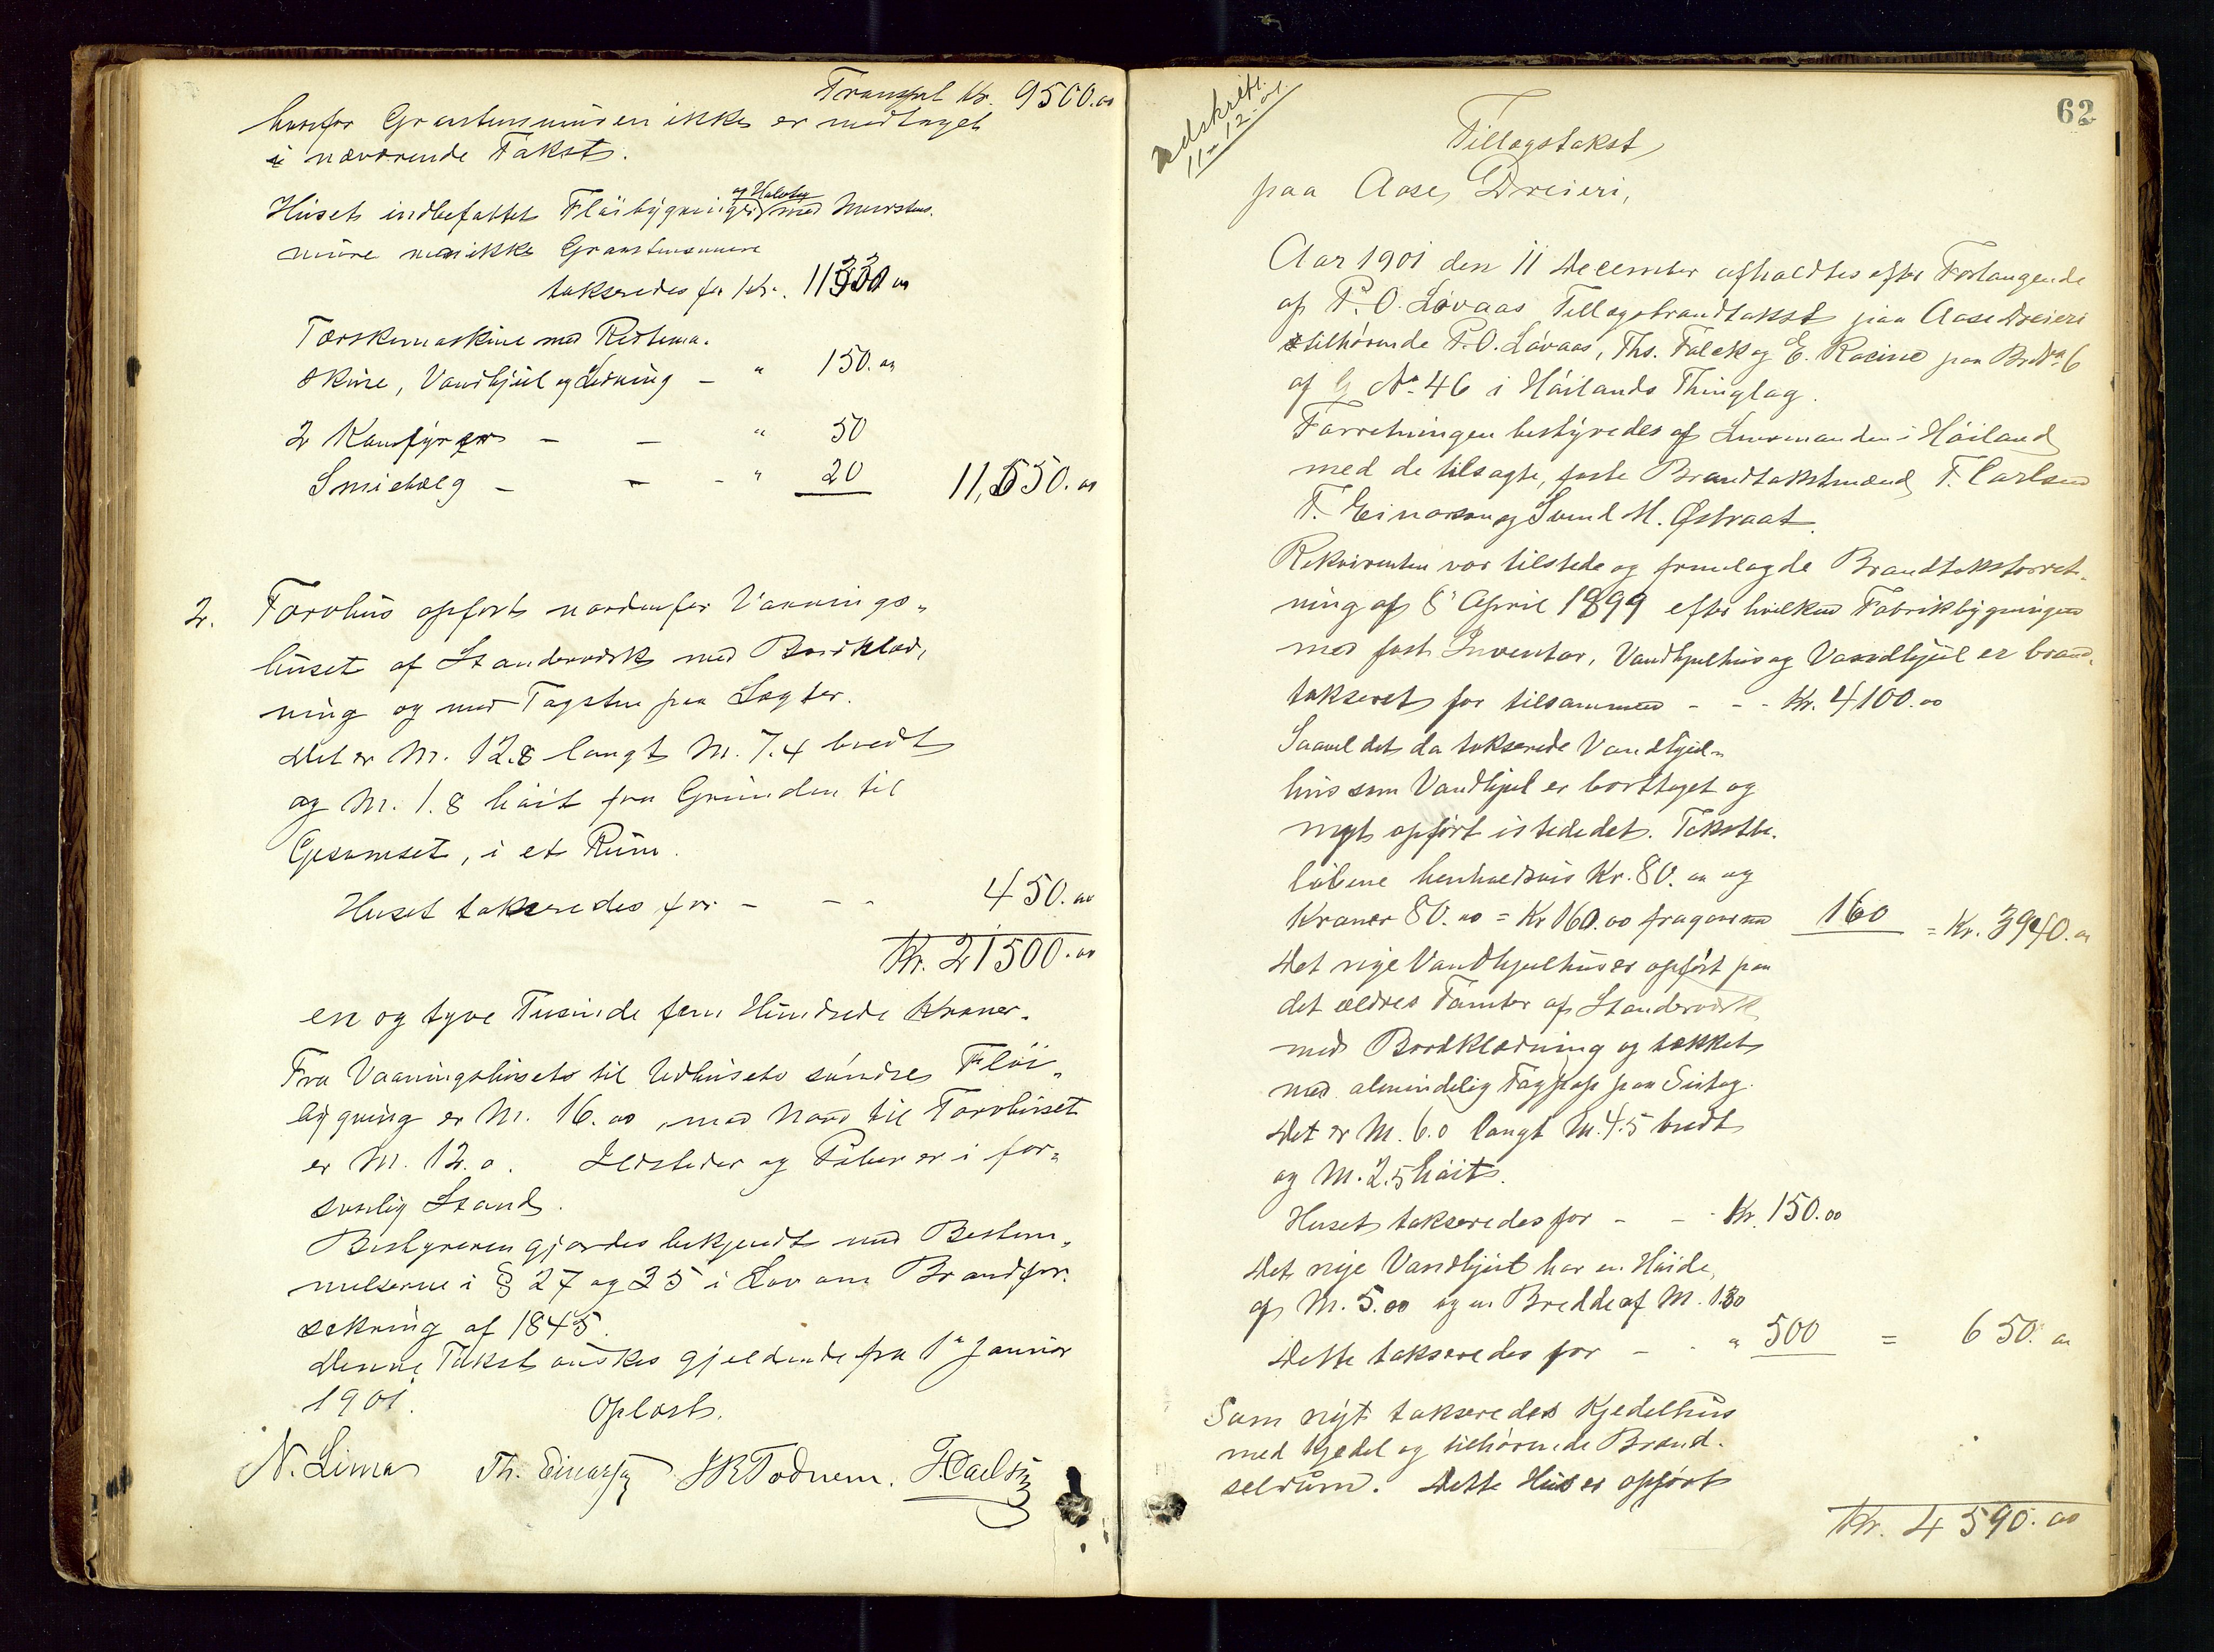 Transport Kr. 9500.00
hvorfor Graastensmuren ikke er medtaget
i nærværende Takst.
Huset indbefattet Fløibygninger og Halvtag med Murstens-
mure men ikke Graastensmure
takseredes for Kr. 11330 00
Tærskemaskine med Rertema-
skine, Vandhjul og Ledning - " 150.00
2 Komfyrer - - " 50
Smiebælg - - - " 20 11,550.00
2. Torvhus opført nordenfor Vaanings-
huset af Standerværk med Bordklæd-
ning og med Tagsten paa Lægter.
Det er M. 12.8 langt M. 7.4 bredt
og M. 1.8 høit fra Grunden til
Gesimset, i et Rum.
Huset takseredes for - - - 450.00
Kr. 21500.00
en og tyve Tusinde fem Hundrede Kroner.
Fra Vaaningshusets til Udhusets søndre Fløi-
bygning er M. 16.00, mod Nord til Torvhuset
er M. 12.0. Ildsteder og Piber er i for-
svarlig Stand.
Bestyreren gjordes bekjendt med Bestem-
melserne i § 27 og 35 i Lov om Brandfor-
sikring af 1845.
Denne Takst ønskes gjeldende fra 1ste Januar
1901.
Oplæst.
N. Lima Th. Einarsen T. Carlsen
62
Udskrift
11-12-01.
Tillægstakst
paa Aase Dreieri,
Aar 1901 den 11 December afholdtes efter Forlangende
af P. O. Løvaas Tillægsbrandtakst paa Aase Dreieri
tilhørende P. O. Løvaas, Ths. Falck og E. Racine paa Br No 6
af G No 46 i Høilands Thinglag.
Forretningen bestyredes af Lensmanden i Høiland
med de tilsagte, faste Brandtakstmænd T. Carlsen
T. Einarsen og Svend M. Østraat.
Rekvirenten var tilstede og fremlagde Brandtakstforret-
ning af 6 April 1899 efter hvilken Fabrikbygningen
med fast Inventar, Vandhjulhus og Vandhjul er brand-
takseret for tilsammen - - - Kr. 4100.00
Saavel det da takserede Vandhjul-
hus som Vandhjul er borttaget og
nyt opført istedet. Takstbe-
løbene henholdsvis Kr. 80.00 og
Kroner 80.00 = Kr 160.00 fragaar 160 = Kr. 3940.00
Det nye Vandhjulhus er opført paa
det ældres Tomter af Standerværk
med Bordklædning og tækket
med almindelig Tagpap paa Sutag.
Det er M. 6.0 langt M. 4.5 bredt
og M. 2.5 høit.
Huset takseredes for - - - Kr. 150.00
Det nye Vandhjul har en Høide
af M. 5.00 og en Bredde af M. 1.30
Dette takseredes for - - " 500 = 650.00
Som nyt takseredes Kjedelhus
med Kjedel og tilhørende Brænd-
selrum. Dette Hus er opført
Kr. 4590.00